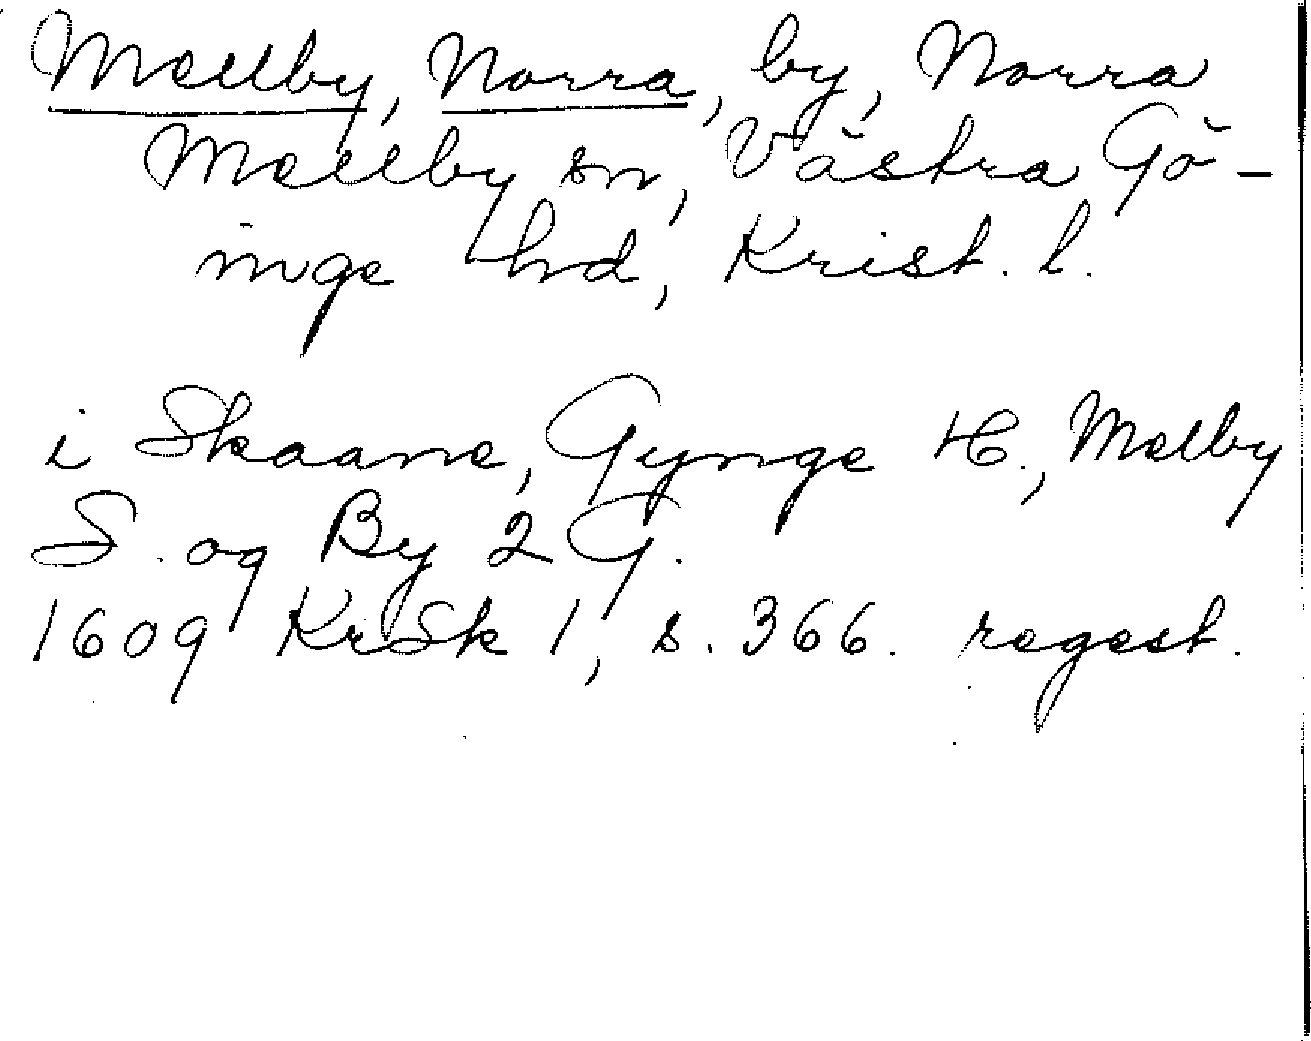 Mellby, Norra, by, Norra
Mellby sn, Västra Gö-
inge hd, Krist. l.
i Skaane, Gynge H., Melby
S. og By 2 G.
1609 KrSk 1, s. 366. regest.